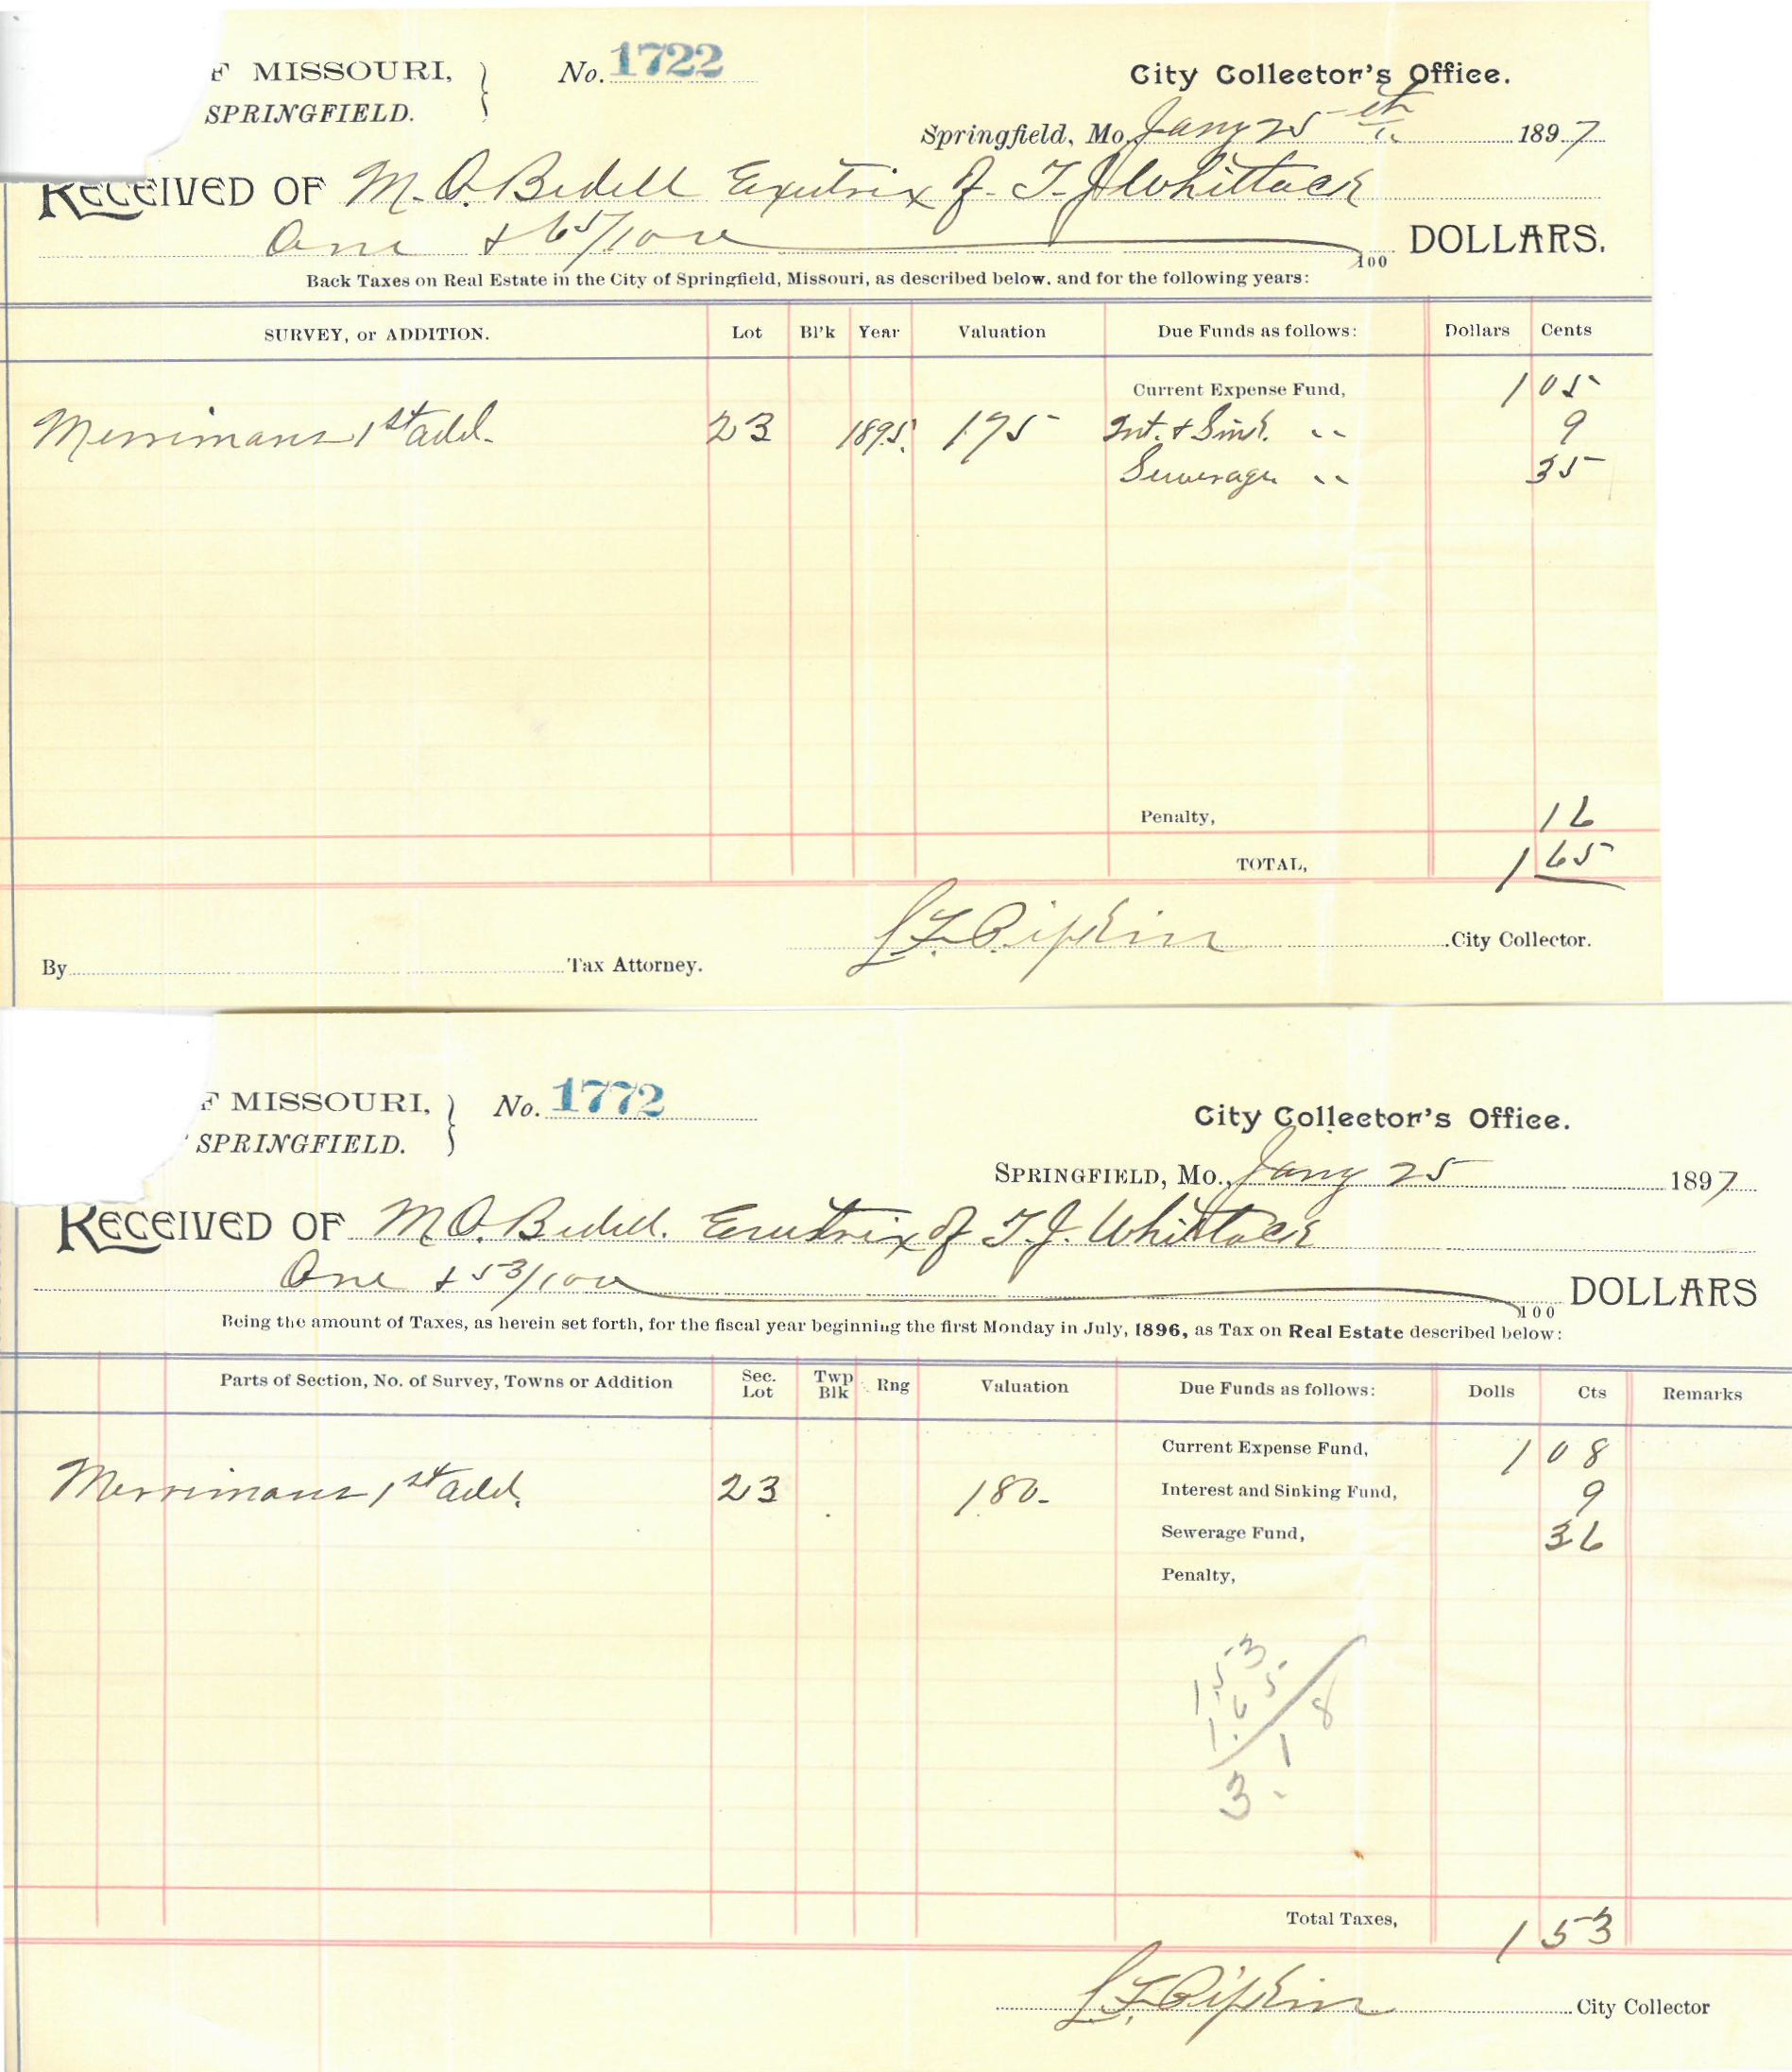 F MISSOURI, } No. 1722 City Collector's Office.
SPRINGFIELD. Springfield, Mo. Jany 25th 1897
RECEIVED OF M. O. Bedell Exutrix of T. J. Whittack
One & 65/100 100 DOLLARS.
Back Taxes on Real Estate in the City of Springfield, Missouri, as described below, and for the following years:
SURVEY, or ADDITION. Lot Bl'k Year Valuation Due Funds as follows: Dollars Cents
Current Expense Fund, 1 05
Merrimans 1st add. 23 1895. 175 Int. & Sink. " 9
Sewerage " 35
Penalty, 16
TOTAL, 1 65
L F Pipkin City Collector.
By Tax Attorney.
F MISSOURI, } No. 1772 City Collector's Office.
SPRINGFIELD. SPRINGFIELD, Mo., Jany 25 1897
RECEIVED OF M. O. Bedell. Exutrix of T. J. Whittack
One & 53/100 100 DOLLARS
Being the amount of Taxes, as herein set forth, for the fiscal year beginning the first Monday in July, 1896, as Tax on Real Estate described below:
Parts of Section, No. of Survey, Towns or Addition Sec. Lot Twp Blk Rng Valuation Due Funds as follows: Dolls Cts Remarks
Current Expense Fund, 1 08
Merrimans 1st add. 23 180- Interest and Sinking Fund, 9
Sewerage Fund, 36
Penalty,
1.53
1.65
3.18
Total Taxes, 1 53
L F Pipkin City Collector